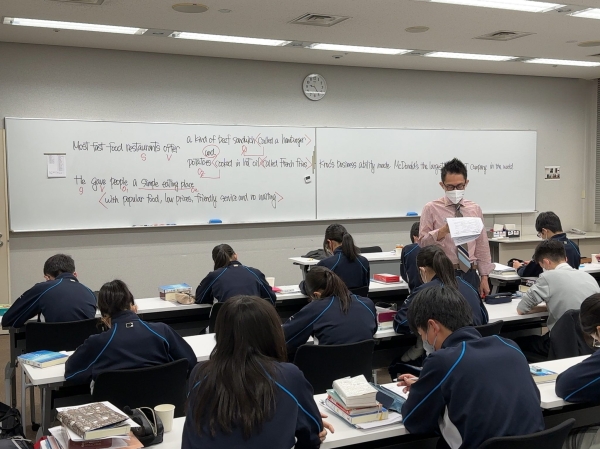 a kind of beef sandwich <called a hamburger>
Most fast-food restaurants offer and
S V
potatoes <cooked in hot oil <called French fries>
Kroc's business ability made McDonald's the largest company in the world
He gave people a simple eating place
S V
<with popular food, low prices, friendly service and no waiting>